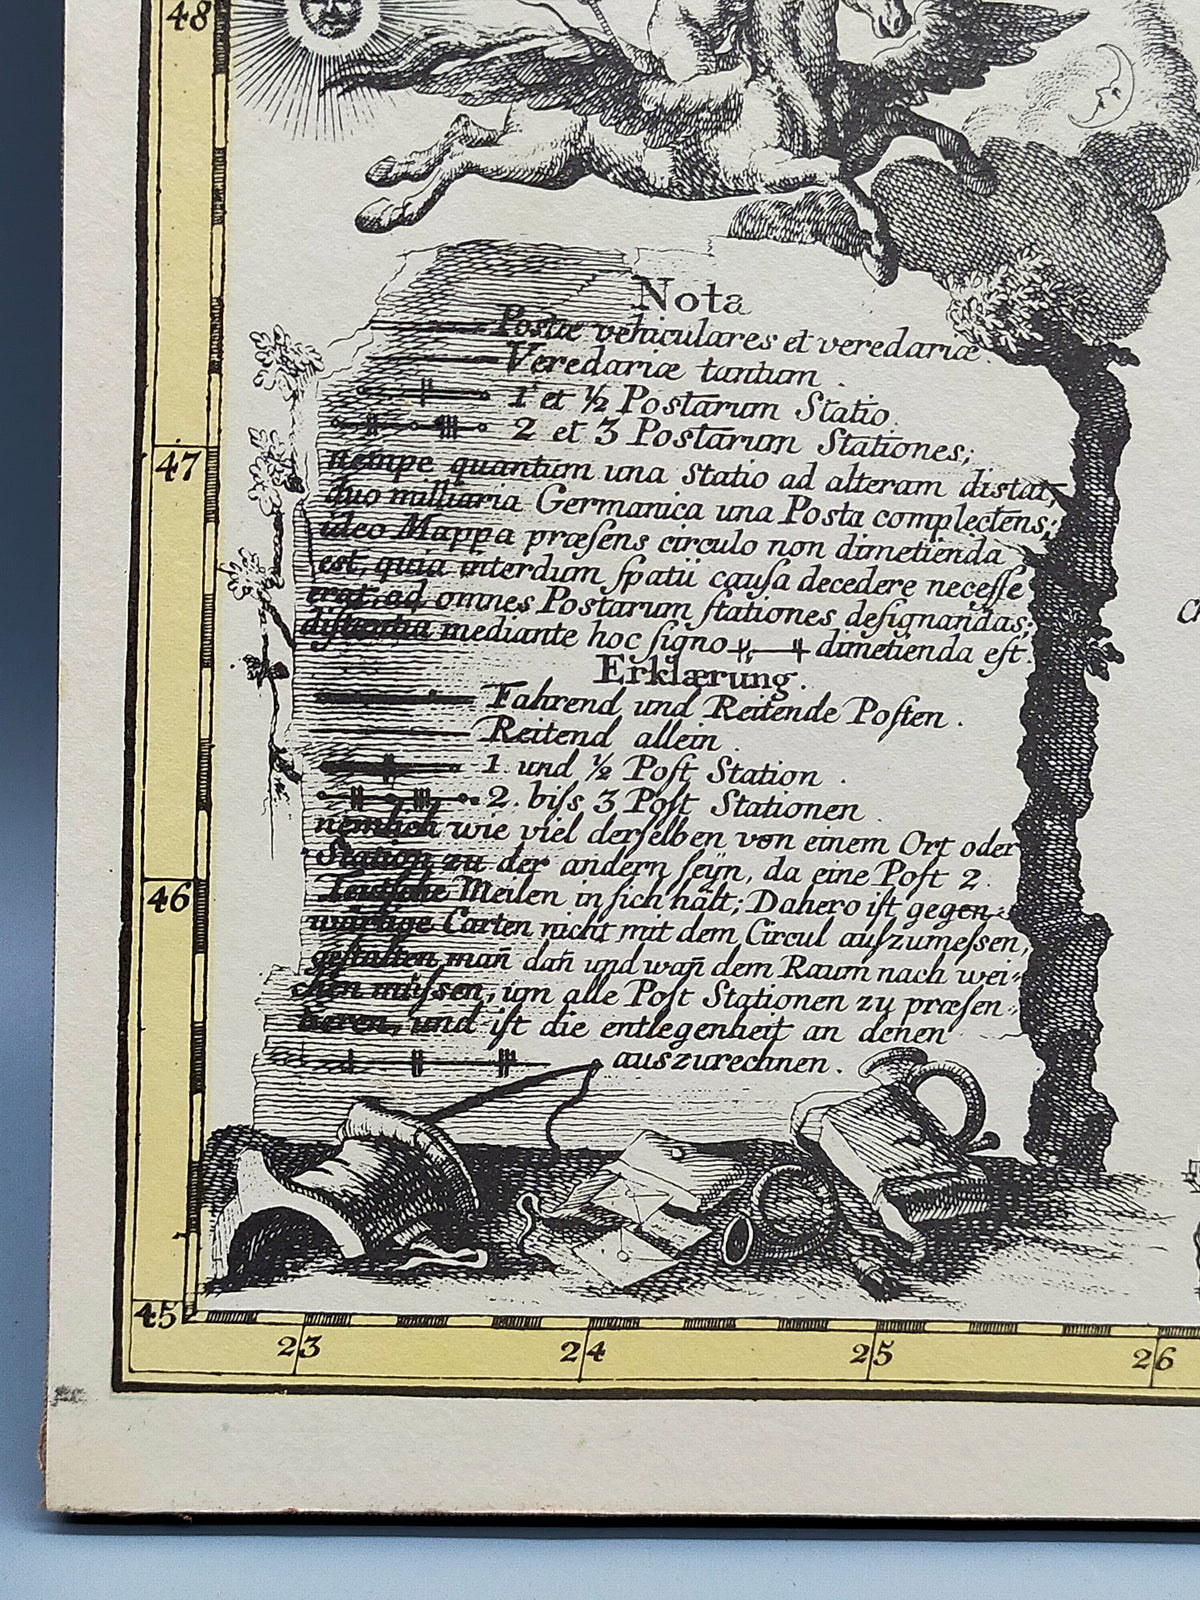 48
Nota
Postæ vehiculares et veredariæ
Veredariæ tantum .
1 et ½ Postarum Statio.
2 et 3 Postarum Stationes;
nempe quantum una Statio ad alteram distat,
duo milliaria Germanica una Posta complectens;
ideo Mappa præſens circulo non dimetienda
est, quia interdum ſpatii cauſa decedere neceſſe
erat, ad omnes Postarum ſtationes deſignandas;
diſtantia mediante hoc ſigno dimetienda eſt.
Erklærung.
Fahrend und Reitende Poſten .
Reitend allein .
1 und ½ Poſt Station .
2. biſs 3 Poſt Stationen .
nemlich wie viel derſelben von einem Ort oder
Station zu der andern ſeÿn, da eine Poſt 2.
Teutſche Meilen in ſich hält; Dahero iſt gegen-
wärtige Carten nicht mit dem Circul auſzumeſsen,
geſtalten man̄ dan̄ und wan̄ dem Raum nach wei-
chen müſsen, um alle Poſt Stationen zu præſen-
tieren, und iſt die entlegenheit an denen
auszurechnen.
47
46
45
23 24 25 26